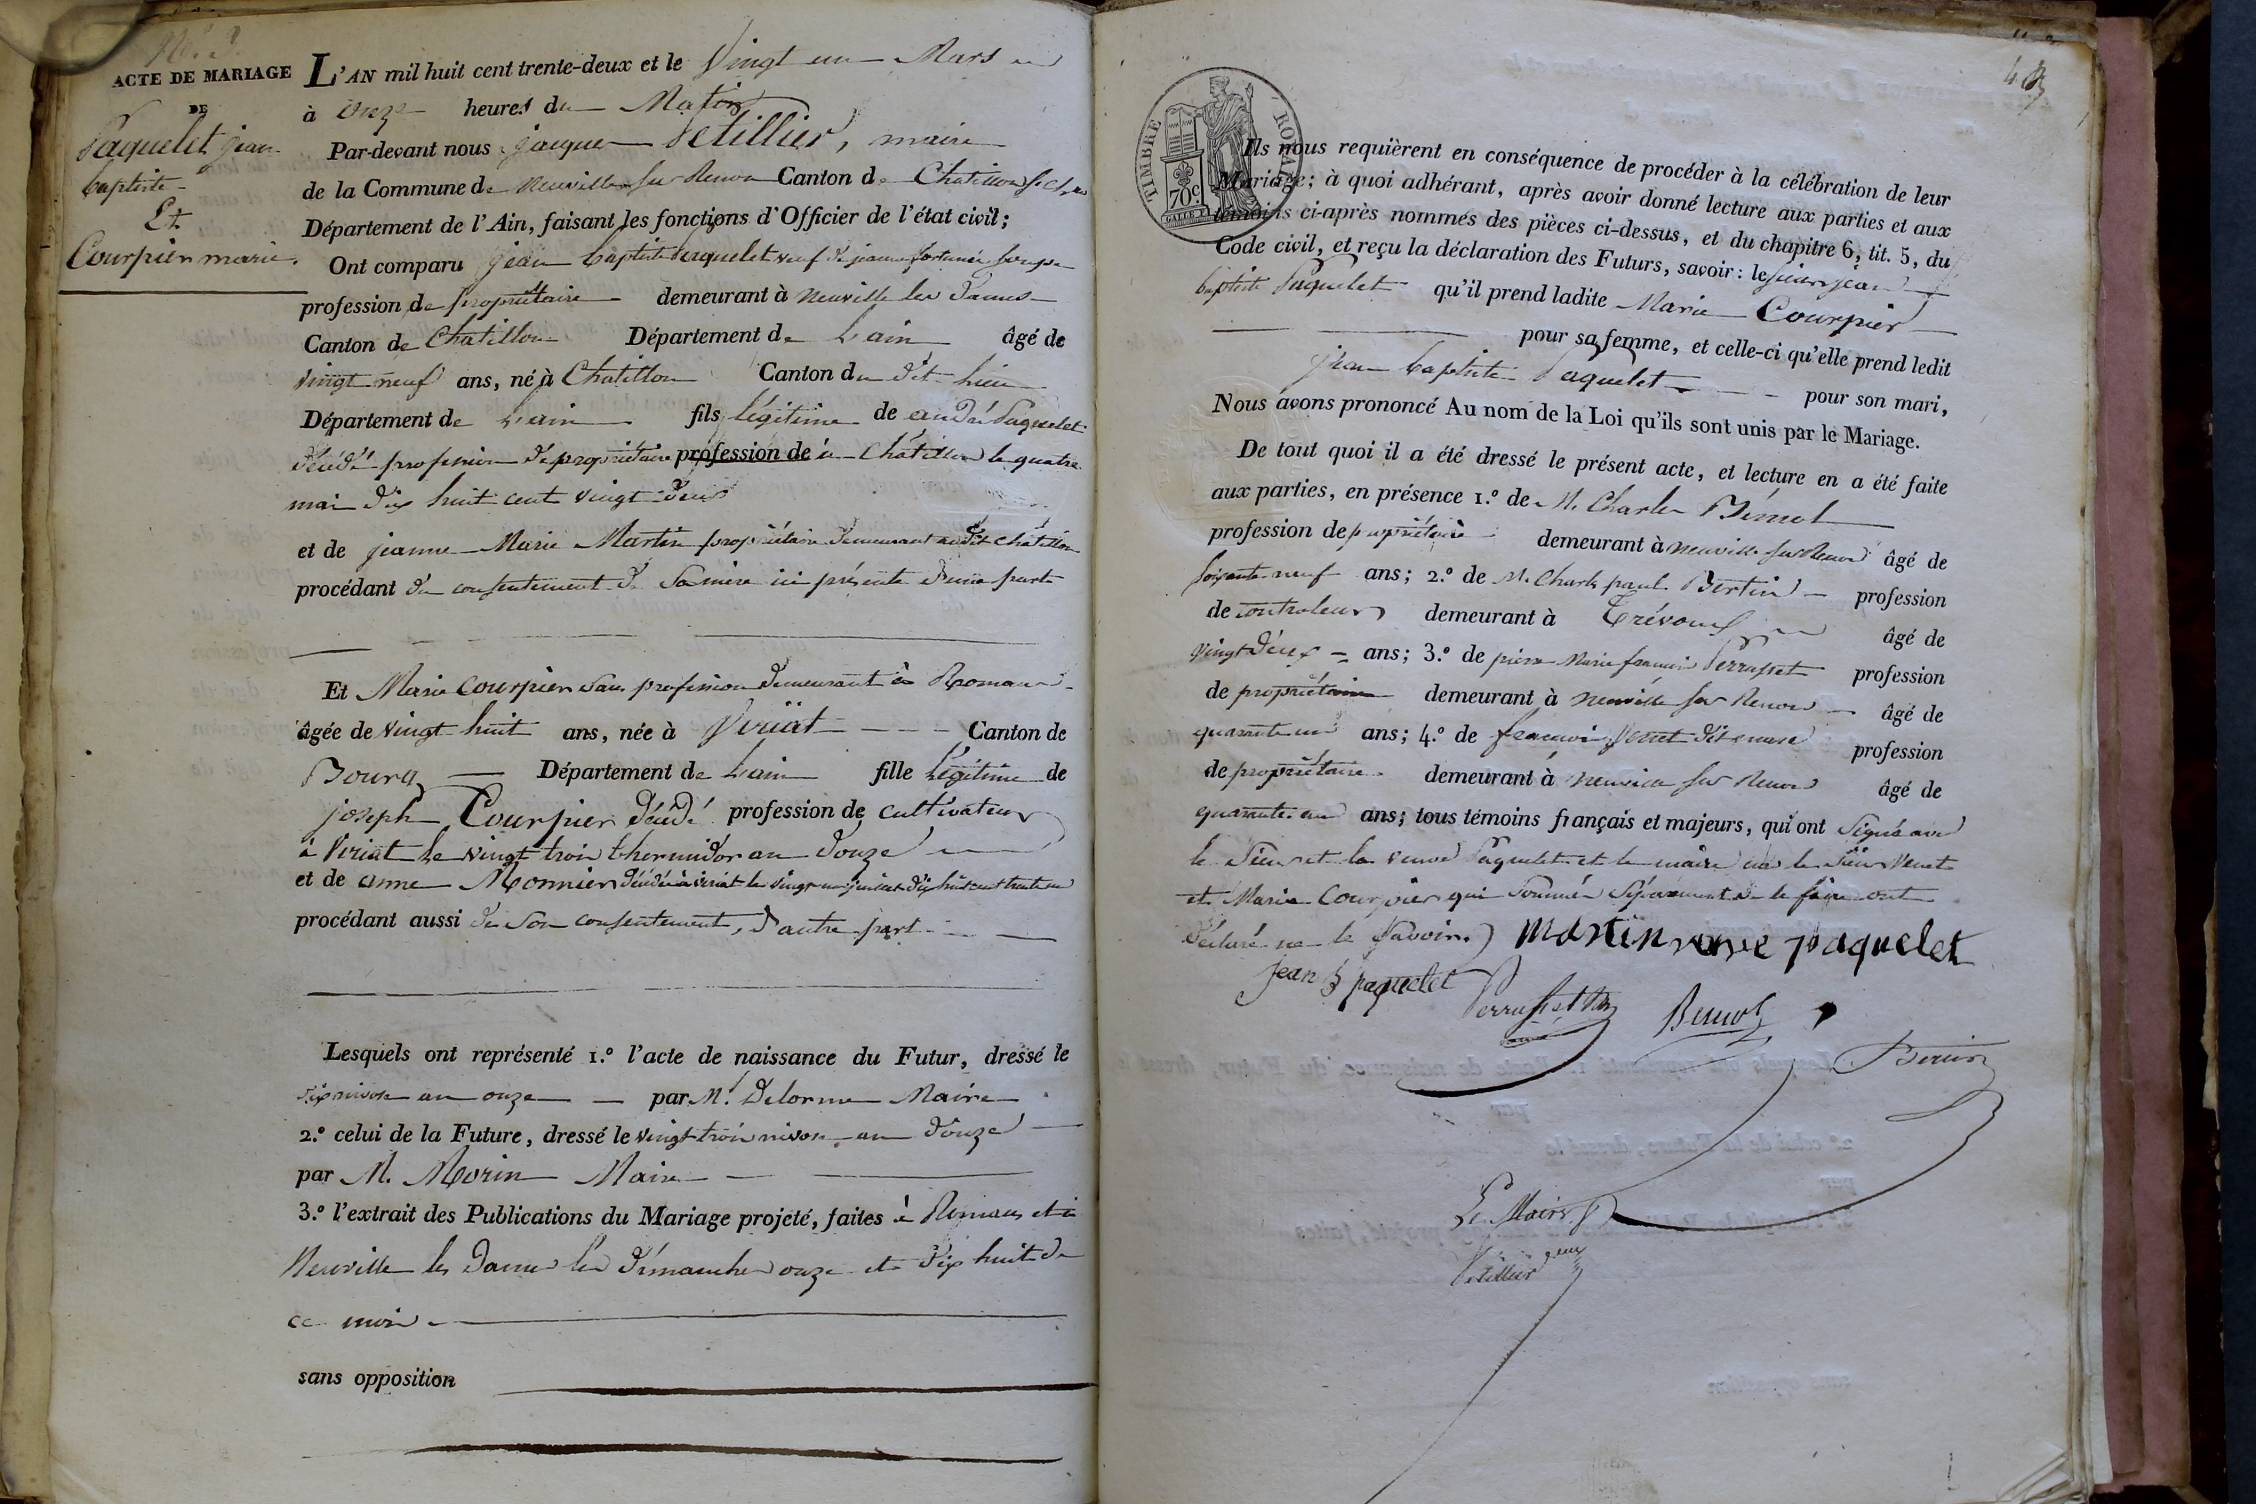 ACTE DE MARIAGE
DE
Paquelet jean
baptiste
Et
Courpier marie.
L'AN mil huit cent trente-deux et le Vingt un Mars
à onze heures du Matin
Par-devant nous jacques Vetillier, maire
de la Commune de neuville sur Renon Canton de Chatillon s. Ch.
Département de l'Ain, faisant les fonctions d'Officier de l'état civil;
Ont comparu jean baptiste paquelet veuf de jeanne fortunée
profession de propriétaire demeurant à neuville les Dames
Canton de Chatillon Département de Lain âgé de
vingt neuf ans, né à Chatillon Canton du dit lieu
Département de Lain fils légitime de andré Paquelet
décédé profession de propriétaire profession de à Châtillon le quatre
mai dix huit cent vingt deux
et de jeanne Marie Martin propriétaire demeurant audit chatillon
procédant du consentement de Sa mère ici présente d'une part
Et Marie Courpier sans profession demeurant à Romans
âgée de vingt huit ans, née à Viriat Canton de
Bourg Département de Lain fille légitime de
joseph Courpier décédé profession de cultivateur
à Viriat le vingt trois thermidor an douze
et de anne Monnier décédée à viriat le vingt un dix huit cent trente un
procédant aussi de Son consentement, d'autre part
Lesquels ont représenté 1.º l'acte de naissance du Futur, dressé le
six nivose an onze par M. Delorme Maire
2.º celui de la Future, dressé le vingt trois nivose an douze
par M. Morin Maire
3.º l'extrait des Publications du Mariage projeté, faites à Romans et à
Neuville les Dames les dimanches onze et dix huit de
ce mois
sans opposition
TIMBRE ROYAL
70c
Ils nous requièrent en conséquence de procéder à la célébration de leur
Mariage; à quoi adhérant, après avoir donné lecture aux parties et aux
témoins ci-après nommés des pièces ci-dessus, et du chapitre 6, tit. 5, du
Code civil, et reçu la déclaration des Futurs, savoir: le sieur jean
baptiste Paquelet qu'il prend ladite Marie Courpier
pour sa femme, et celle-ci qu'elle prend ledit
jean baptiste Paquelet pour son mari,
Nous avons prononcé Au nom de la Loi qu'ils sont unis par le Mariage.
De tout quoi il a été dressé le présent acte, et lecture en a été faite
aux parties, en présence 1.º de M. Charles
profession de propriétaire demeurant à neuville sur Renon âgé de
soixante neuf ans; 2.º de M. Charle paul profession
de controleur demeurant à Trévoux âgé de
vingt deux ans; 3.º de pierre Marie françois Perrusset profession
de propriétaire demeurant à neuville sur Renon âgé de
quarante un ans; 4.º de françois Venet dit profession
de propriétaire demeurant à neuville sur Renon âgé de
quarante un ans; tous témoins français et majeurs, qui ont Signé avec
le Sieur et la veuve Paquelet et le maire non le Sieur Venet
et Marie Courpier qui Sommés Séparément de le faire ont
déclaré ne le Savoir.
Martin veuve paquelet
jean B paquelet
Perrusset
Le Maire
Vetillier